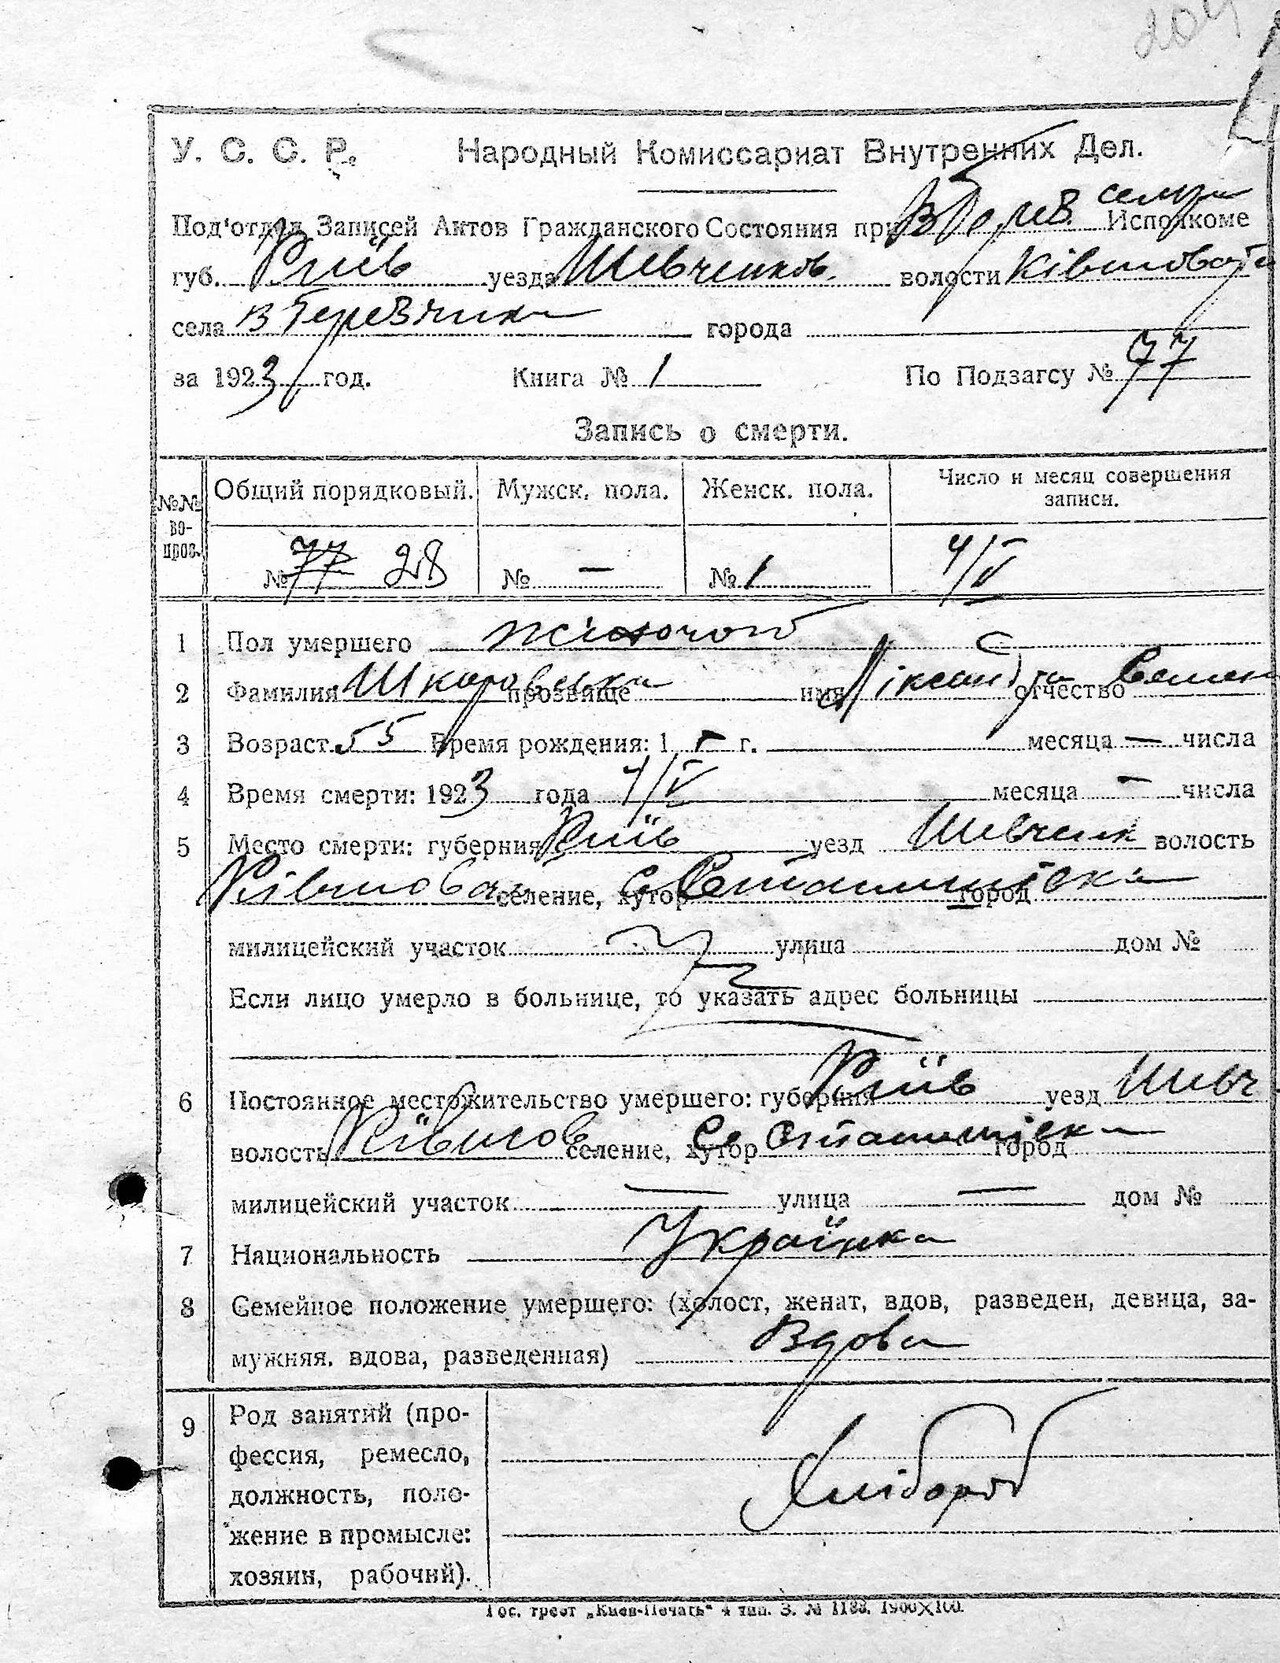 204
У. С. С. Р. Народный Комиссариат Внутренних Дел.
Под'отдел Записей Актов Гражданского Состояния при Исполкоме
губ. Київ уезда Шевченков. волости Ківшовата
села В Березянка города
за 1923 год. Книга № 1 По Подзагсу № 77
Запись о смерти.
№№ вопрос. Общий порядковый. Мужск. пола. Женск. пола. Число и месяц совершения записи.
№ 77 28 № — № 1 4/V
1 Пол умершего жіночої
2 Фамилия Шкаровська прозвище имя Ліксандра отчество Семен
3 Возраст 55 Время рождения: 1 г. месяца — числа
4 Время смерти: 1923 года 4/V месяца — числа
5 Место смерти: губерния Київ уезд Шевченк волость
Ківшовач селение, хутор с Степанишівка город
милицейский участок улица дом №
Если лицо умерло в больнице, то указать адрес больницы
6 Постоянное местожительство умершего: губерния Київ уезд Шевч
волость Ківшов селение, хутор с Степанишівка город
милицейский участок — улица — дом №
7 Национальность Українка
8 Семейное положение умершего: (холост, женат, вдов, разведен, девица, за-
мужняя, вдова, разведенная) Вдова
9 Род занятий (про-
фессия, ремесло,
должность, поло-
жение в промысле:
хозяин, рабочий).
Хлібороб
Гос. трест „Киев-Печать" 4 тип. З. № 1188. 1900×100.